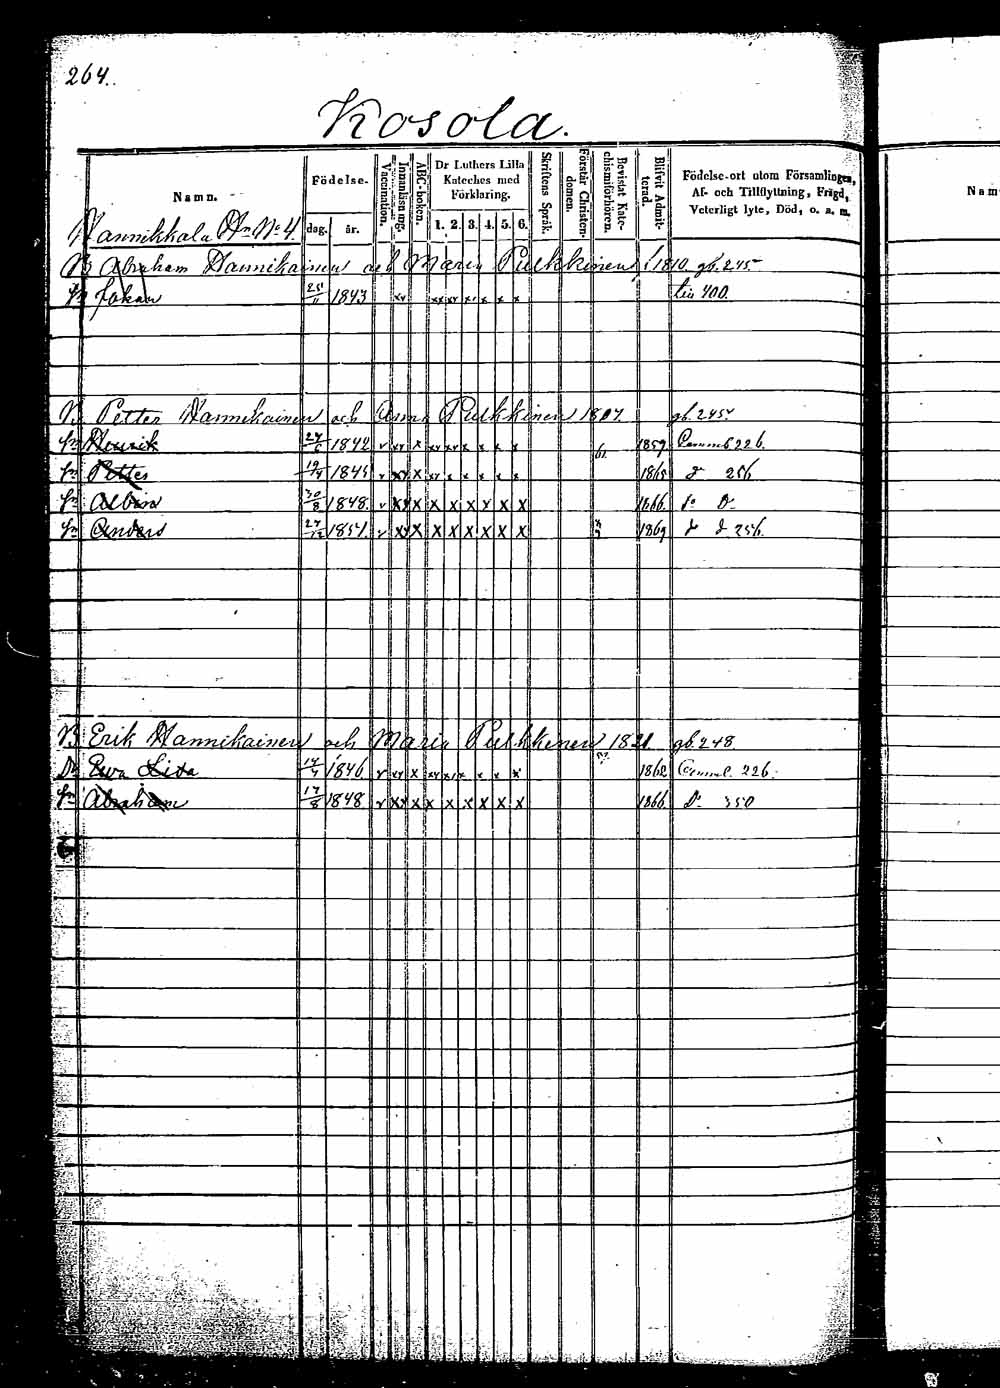 264.
Kosola.
Namn.
Födelse-
dag.
år.
Vaccination.
Innanläsning.
ABC-boken.
Dr Luthers Lilla Kateches med Förklaring.
1. 2. 3. 4. 5. 6.
Skriftens Språk.
Förstår Christendomen.
Bevistat Katechismiförhören.
Blifvit Admitterad.
Födelse-ort utom Församlingen, Af- och Tillflyttning, Frägd, Veterligt lyte, Död, o. a. m.
Nam
Hannikkala Hn No 4.
B Abraham Hannikainen och Maria Pulkkinen 1810 gb. 245
Sn Johan 25/11 1843 xx xx xx x x x x Liv 400.
B Petter Hannikainen och Anna Pulkkinen 1807. gb. 245
Sn Henrik 24/6 1842 v xx x xx xx x x x x 61. 1859 Comm. 226.
Sn Petter 19/4 1845 v xx x xx x x x x x 1865 do 256
Sn Albin 30/8 1848. v xx x x x x x x x 1866. do Do
Sn Anders 27/12 1851. v xx x x x x x x x 1869 d d 256.
B Erik Hannikainen och Maria Pulkkinen 1821. gb. 248
Dr Ewa Lisa 14/4 1846 v xx x xx x x x x x 1862 Comm. 226.
Sn Abraham 17/8 1848 v xx x x x x x x x 1866. Do 350